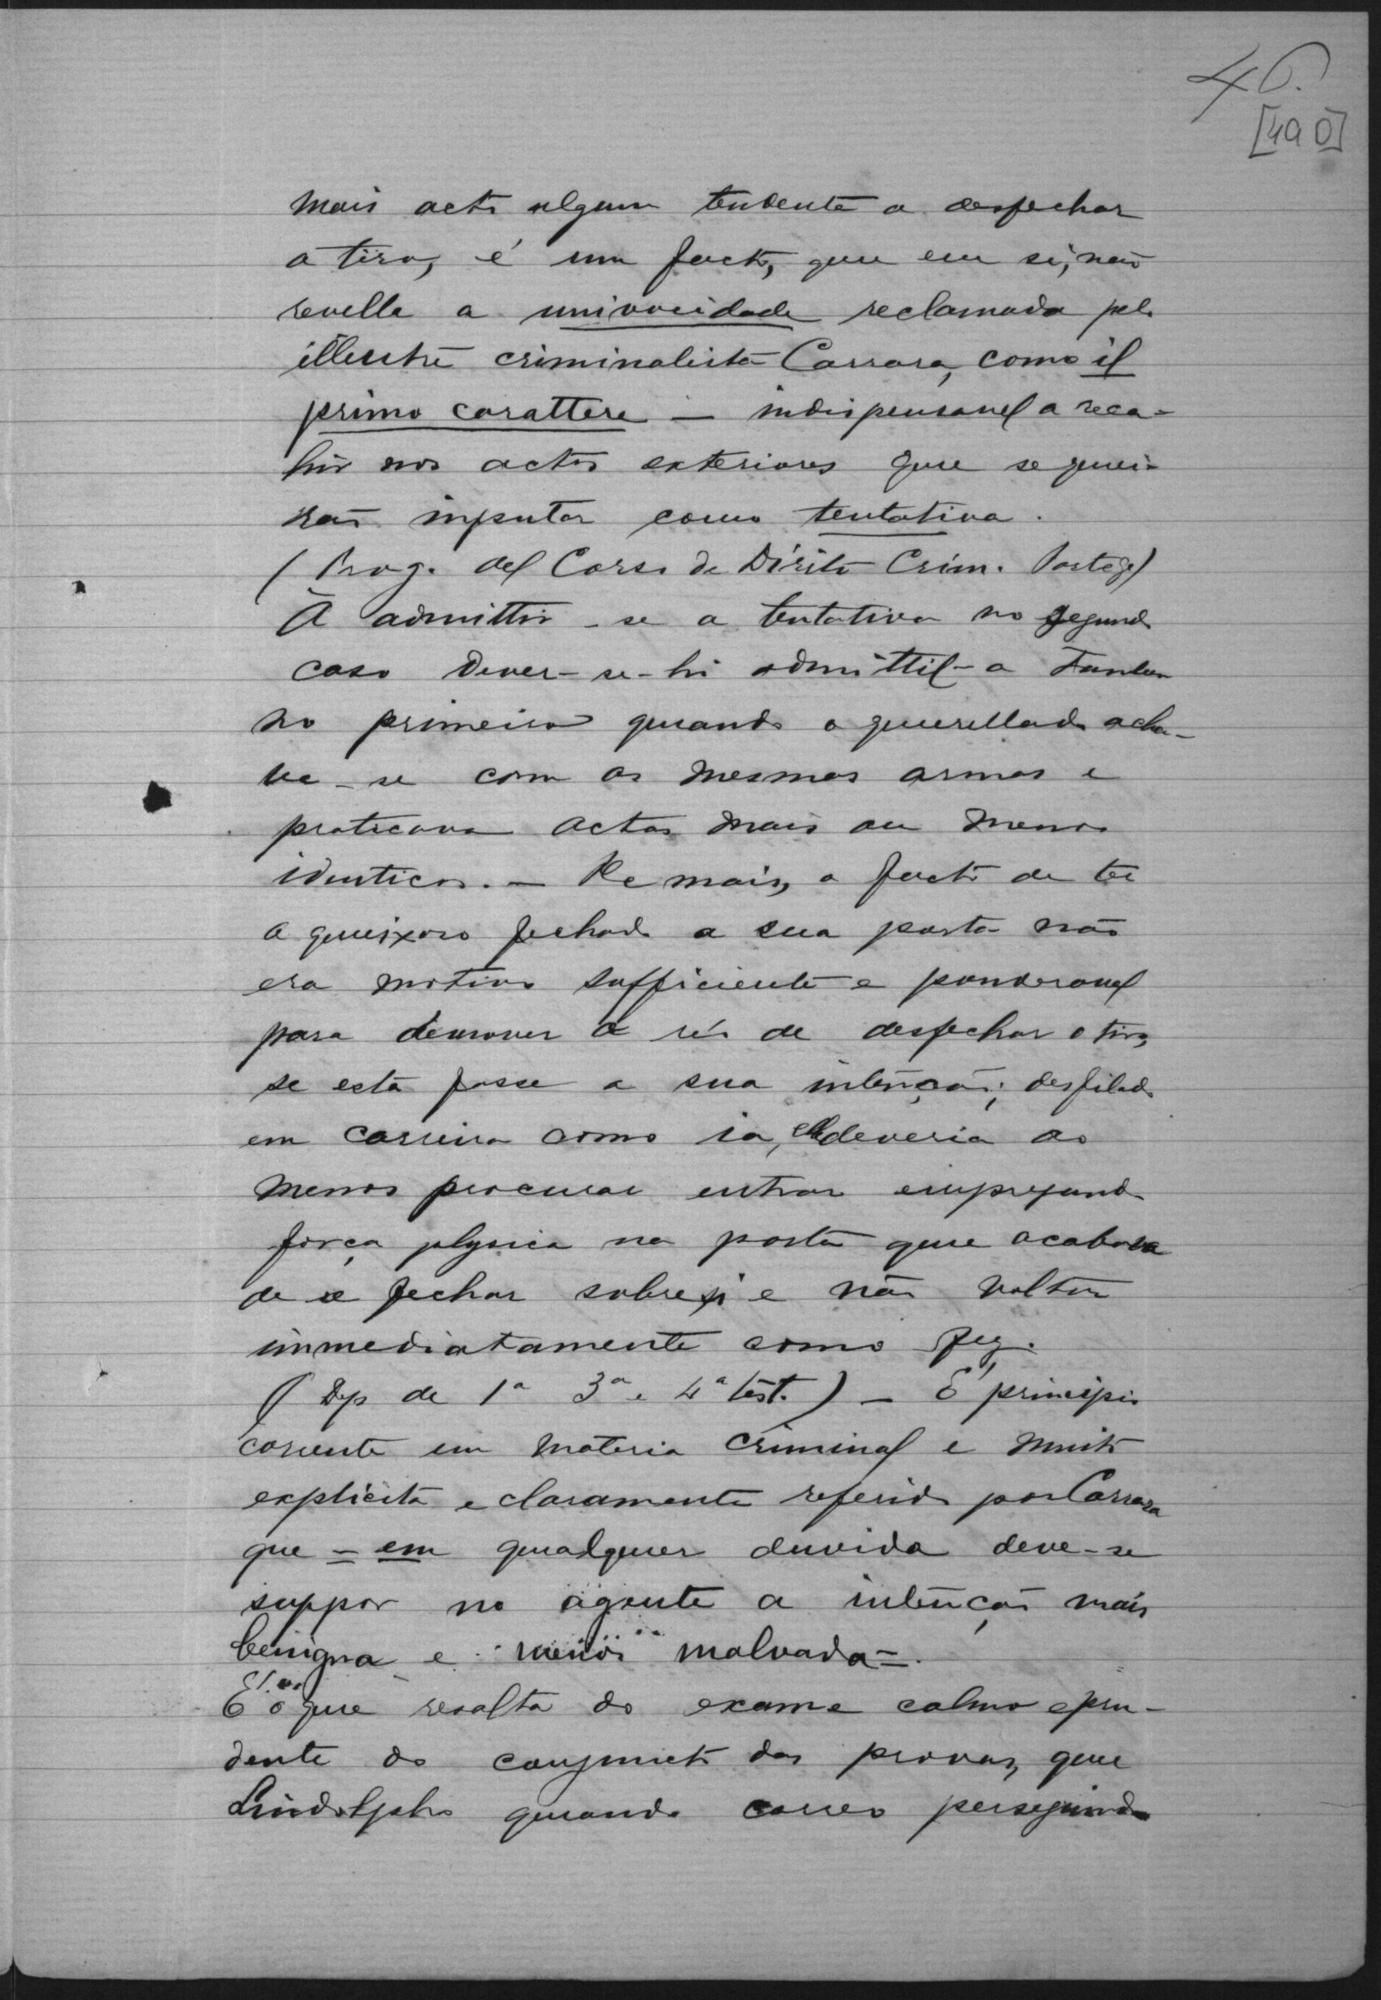 46.
[49 0]
mais acto algum tendente a desfechar
o tiro, é um facto, que em si, não
revella a univocidade reclamada pelo
illustre criminalista Carrara, como il
primo carattere — indispensavel a reca-
hir nos actos exteriores que se quei-
rão imputar como tentativa.
(Prog. del Corso de Dirito Crim.
A admittir-se a tentativa no segundo
caso dever-se-hi admittil-a tambem
no primeiro quando o querellado acha-
va-se com as mesmas armas e
praticava actos mais ou menos
identicos. — De mais, o facto de ter
o queixoso fechado a sua porta não
era motivo sufficiente e ponderavel
para demover o réo de desfechar o tiro,
se esta fosse a sua intenção; desfilado
em carreira como ia, elle deveria ao
menos procurar entrar empregando
força physica na porta que acabava
de se fechar sobre si e não voltar
immediatamente como fez.
(Dep de 1ª 3ª e 4ª test.) — É principio
corrente em materia criminal e muito
explicita e claramente referido por Carrara
que = em qualquer duvida deve-se
suppor no agente a intenção mais
benigna e menos malvada =.
É o que resalta do exame calmo e pru-
dente do conjuncto das provas, que
Lindolpho quando correo perseguindo